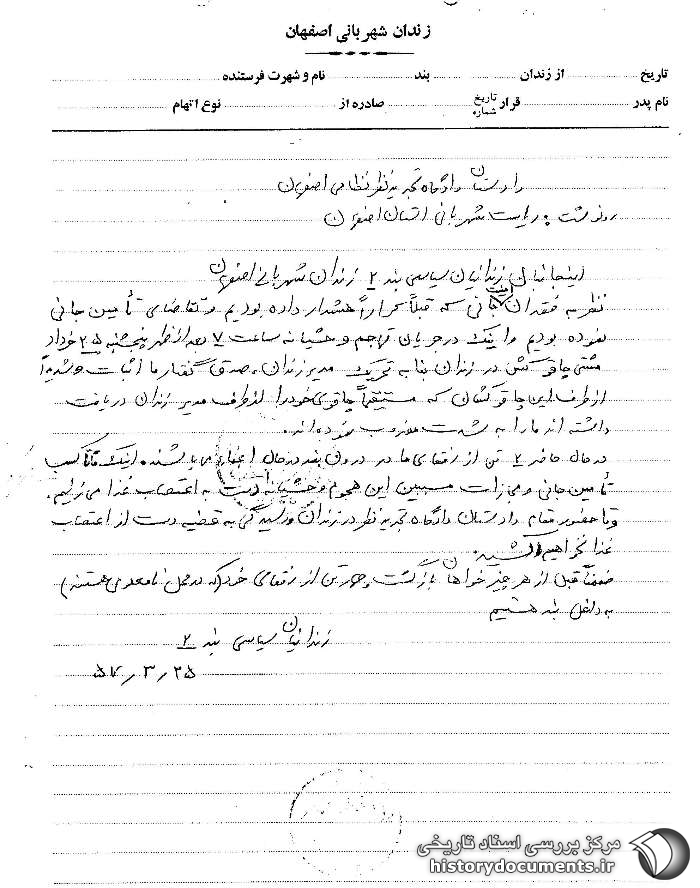 زندان شهربانی اصفهان
تاریخ ........ از زندان ........ بند ........ نام و شهرت فرستنده
نام پدر ........ قرار تاریخ شماره ........ صادره از ........ نوع اتهام
دادستان دادگاه تجدید نظر نظامی اصفهان
رونوشت به ریاست شهربانی استان اصفهان
اینجانبان زندانیان سیاسی بند ۲ زندان شهربانی اصفهان
نظر به فقدان امنیت جانی که قبلاً کراراً هشدار داده بودیم و تقاضای تأمین جانی
نموده بودیم و اینک در جریان تهاجم وحشیانه ساعت ۷ بعد از ظهر پنجشنبه ۲۵ خرداد
مشتی چاقوکش در زندان بنا به تحریک مدیر زندان، صدق گفتار ما اثبات و شدیداً
از طرف این چاقوکشان که مستقیماً چاقوی خود را از طرف مدیر زندان دریافت
داشته اند ما را به شدت مضروب نموده اند.
در حال حاضر ۲ تن از رفقای ما در درون بند در حال اغماء می باشند. اینک تا کسب
تأمین جانی و مجازات مسببین این هجوم وحشیانه دست به اعتصاب غذا می زنیم.
و تا حضور مقام دادستان دادگاه تجدید نظر در زندان و رسیدگی به قضیه دست از اعتصاب
غذا نخواهیم کشید.
ضمناً قبل از هر چیز خواهان بازگشت چهار تن از رفقای خود (که در محل نامعلومی هستند)
به داخل بند هستیم
زندانیان سیاسی بند ۲
۵۷/۳/۲۵
مرکز بررسی اسناد تاریخی
historydocuments.ir